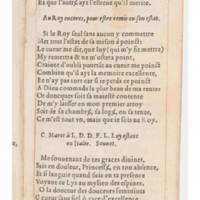 Et que l'autre ayt l'essence qu'il merite.
Au Roy encores, pour estre remis en son estat.
Si le Roy seul sans aucun y commettre
Met tout l'estat de sa maison à poinct:
Le cueur me dit, que luy (qui m'y fit mettre)
My remettra & ne m'ostera point,
Craindre d'oubly pourtant au cueur me poinct
Combien qu'il ayt la memoire excellente,
Et n'ay pas tort, car si je pers ce poinct
A Dieu commãds le plus beau de ma rente
Or doncques soit sa maiesté contente
De me laisser en mon premier arroy,
Soit de sa chambre, ou sa loge, ou sa tente,
Ce m'est tout vn, mais que ie sois au Roy.
C. Marot à L. D. D. F. L. luy estant
en Italie. Sonnet.
Me souuenant de tes graces diuines,
Suis en douleur, Princesse, en ton absence,
Et si languy quand suis en ta presence
Voyant ce Lys au mylieu des espines.
O la douceur des douceurs feminines
O cueur sans fiel